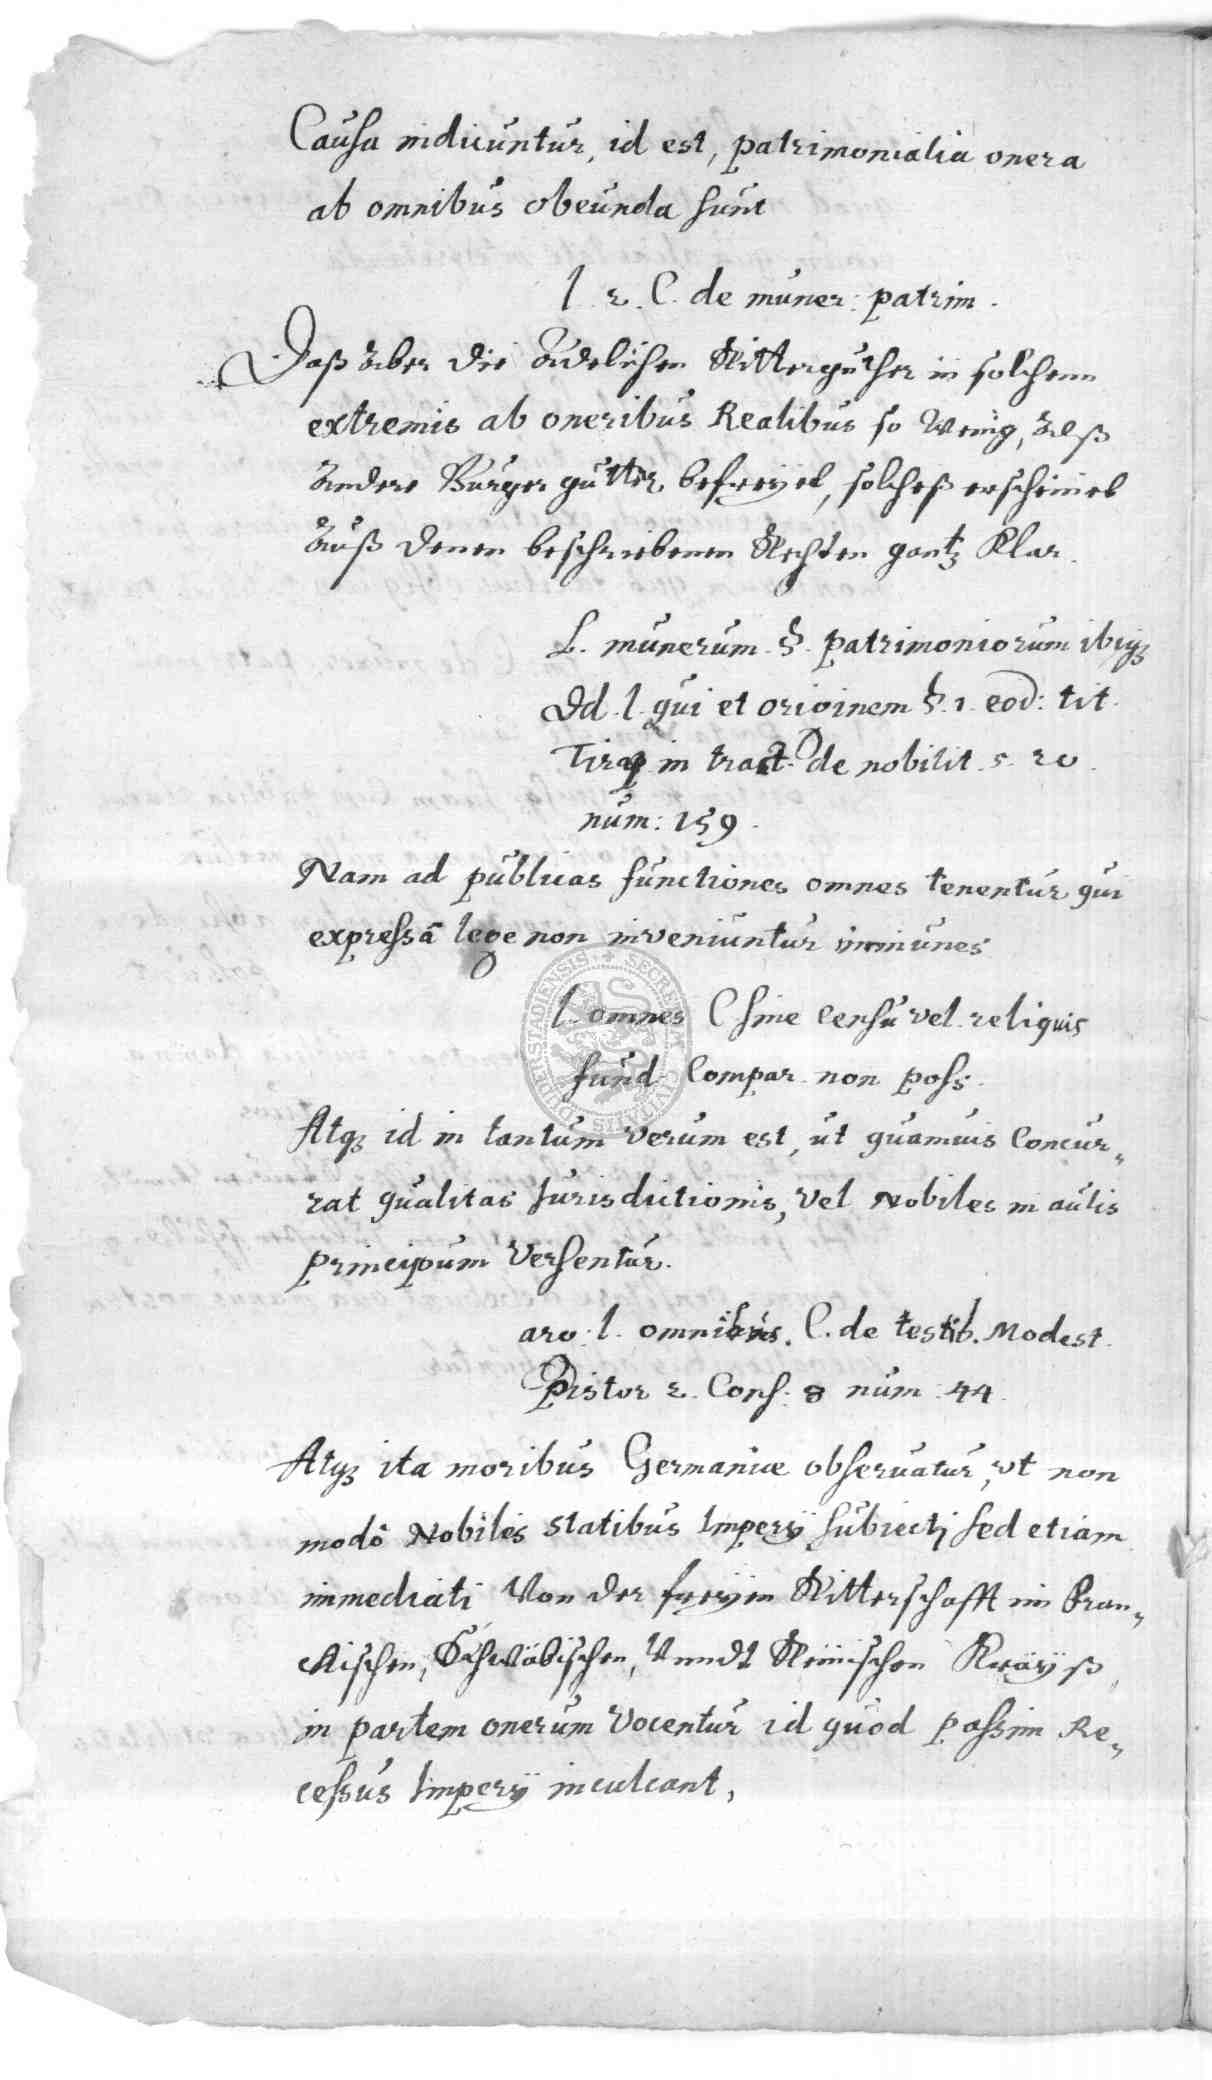 Causa indicuntur, id est, patrimonialia onera
ab omnibus obeunda sunt
l. 2. C. de muner: patrim.
Daß aber die Adelichen Ritterguther in solchenn
extremis ab oneribus Realibus so wenig, alß
andere Burger gutter befreyet, solcheß erscheinet
auß denen beschriebenen Rechten gantz klar.
L. munerum. §. patrimoniorum ibiq3
Dd. l. qui et originem §. 1. eod: tit.
Tiraq. in tract. de nobilit. c. 20.
num: 159.
Nam ad publicas functiones omnes tenentur qui
expressâ lege non inveniuntur immunes
l. omnes C sine censu vel reliquis
fund. Compar. non poss.
Atq3 id in tantum verum est, ut quamvis Concur„
rat qualitas Iurisdictionis, vel Nobiles in aulis
principum versentur.
arg: l. omnibus. C. de testib. Modest.
Pistor 2. Cons: 8 num: 44.
Atq3 ita moribus Germaniae observatur, vt non
modô Nobiles statibus Imperÿ subiecti sed etiam
immediati Von der freÿen Ritterschafft im Fran„
ckischen, Schwäbischen, Vnndt Reinischen Kraÿß,
in partem onerum vocentur id quod passim Re„
cessus Imperÿ inculcant,
SECRETUM CIVITATIS